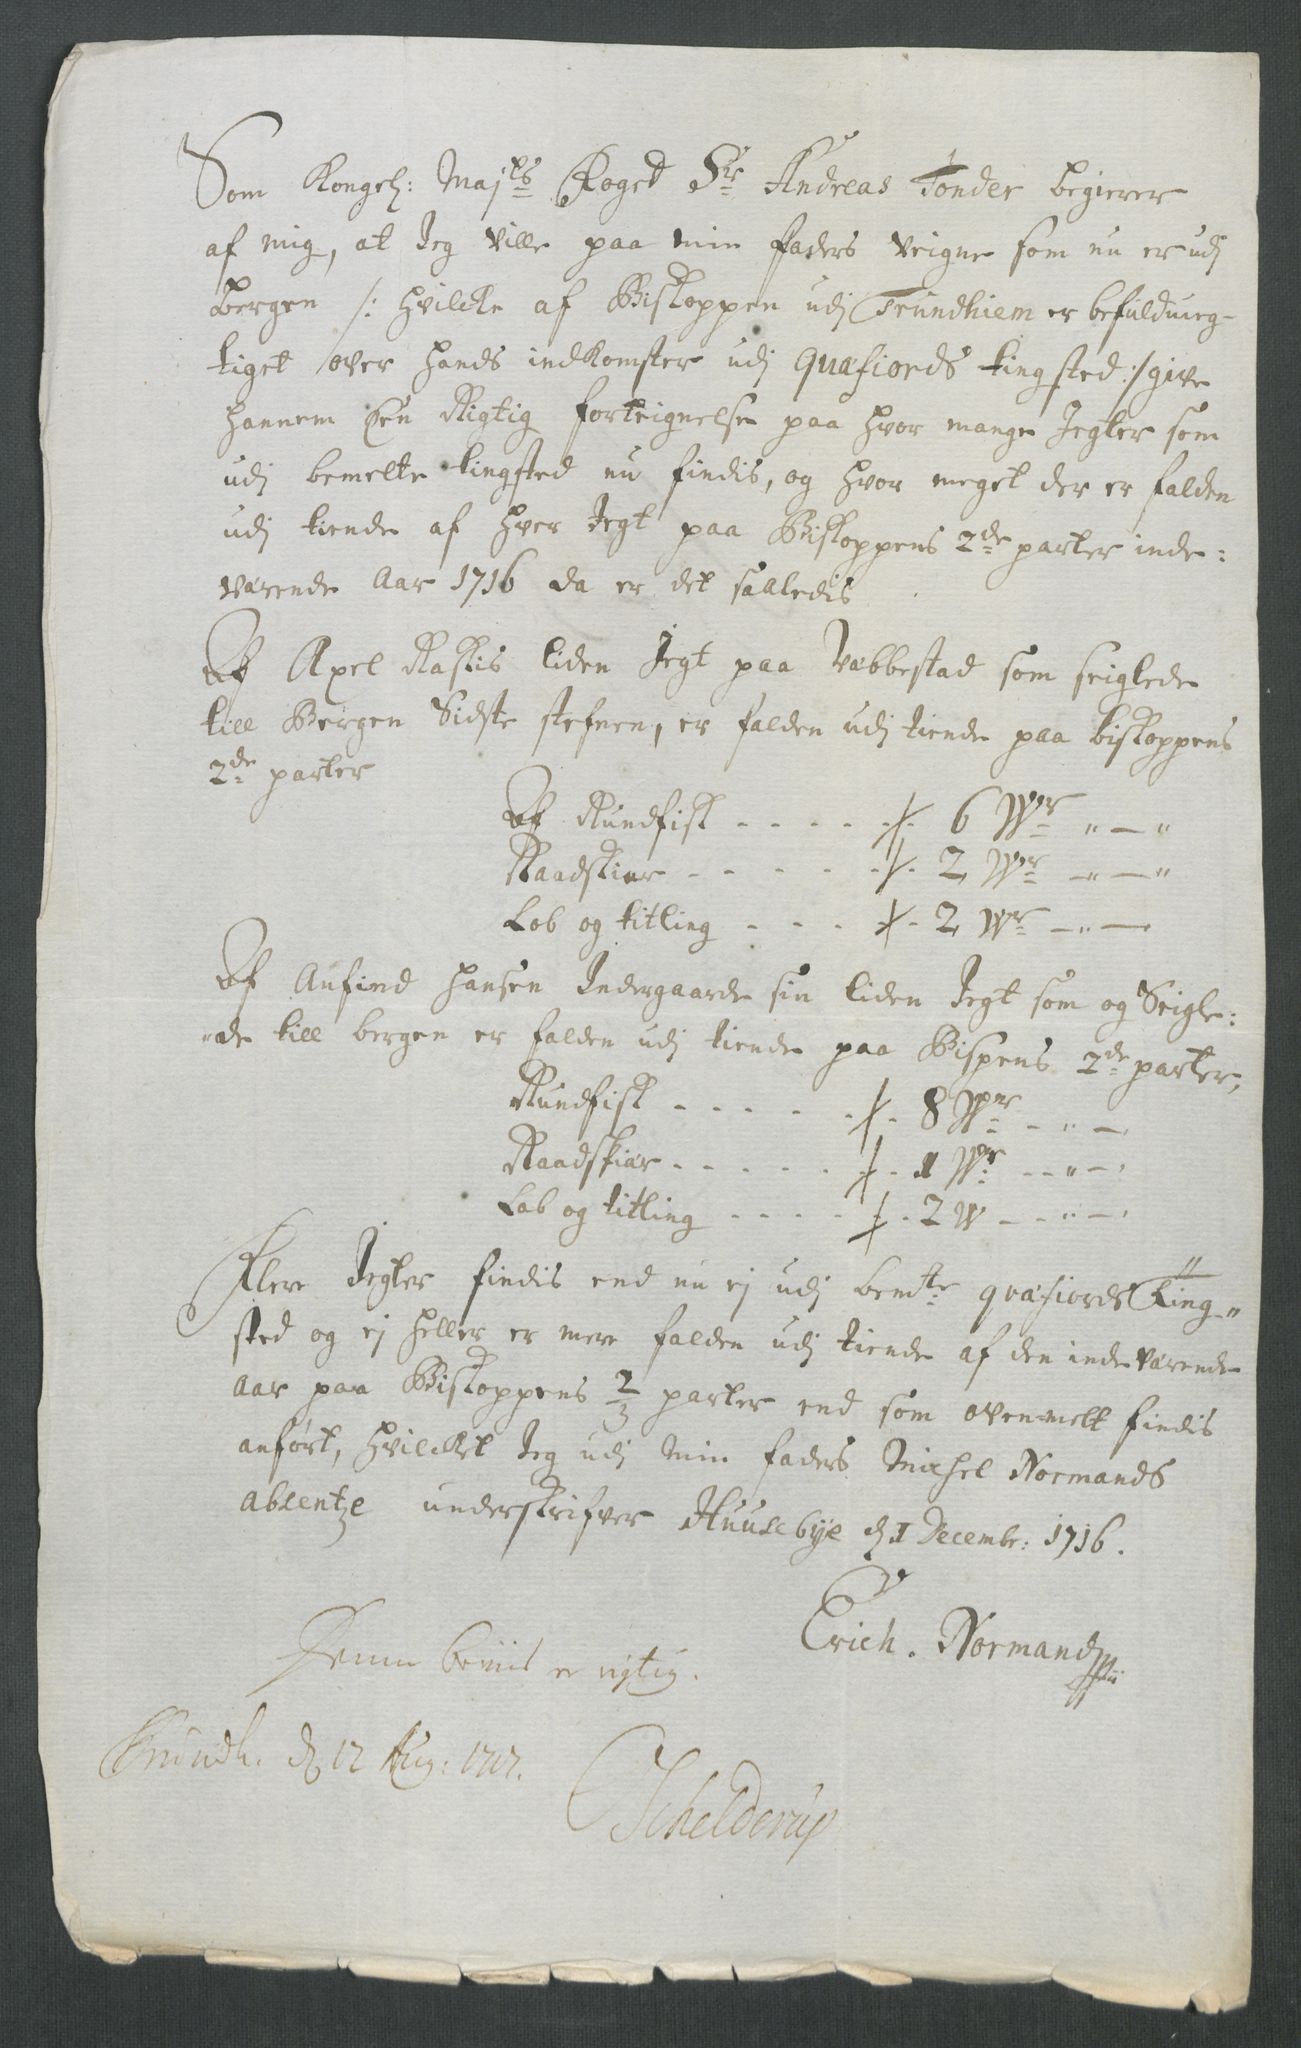 Som Kongel: Majts Foged Sr Andreas Tønder begierer
af mig, at Jeg ville paa min faders veigne som nu er udj
Bergen /: hvilcke af Biskoppen udj Trundhiem er befuldmeg-
tiget over hands indkomster udj Quæfiords tingsted :/ give
hannem Een Rigtig forteignelse paa hvor mange Jegter som
udj bemelte tingsted nu findis, og hvor meget der er falden
udj tiende af hver Jegt paa Biskoppens 2de parter inde:
værende Aar 1716 da er det saaledis
Af Axel Raskis liden Jegt paa Væbbestad som seiglede
till Bergen Sidste stefnen, er falden udj tiende paa biskoppens
2de parter
Af Rundfisk - - - - -/- 6 Wr " — "
Raadskier - - - - -/- 2 Wr - " — "
Lob og titling - - - -/- 2 Wr - " —
Af Anfind Hansen Indergaarde sin liden Jegt som og Seigle:
"de till bergen er falden udj tiende paa Bispens 2de parter,
Rundfisk - - - - - -/- 8 Wr - " —
Raadskiær - - - - - -/- 1 Wr - - " —
Lob og titling - - - - -/- 2 W - - " —
Flere Jegter findis end nu ej udj bemte quæfiords Ting"
sted og ej heller er mere falden udj tiende af den indeværende
Aar paa Biskoppens 2/3 parter end som ovenmelt findis
anført, hvilcket Jeg udj min faders Michel Normands
absentze underskrifver Huusebye d 1 Decembr: 1716.
Erich. Normand
Denne beviis er rigtig.
Trundh. d 12 Aug: 1717.
Schelderup